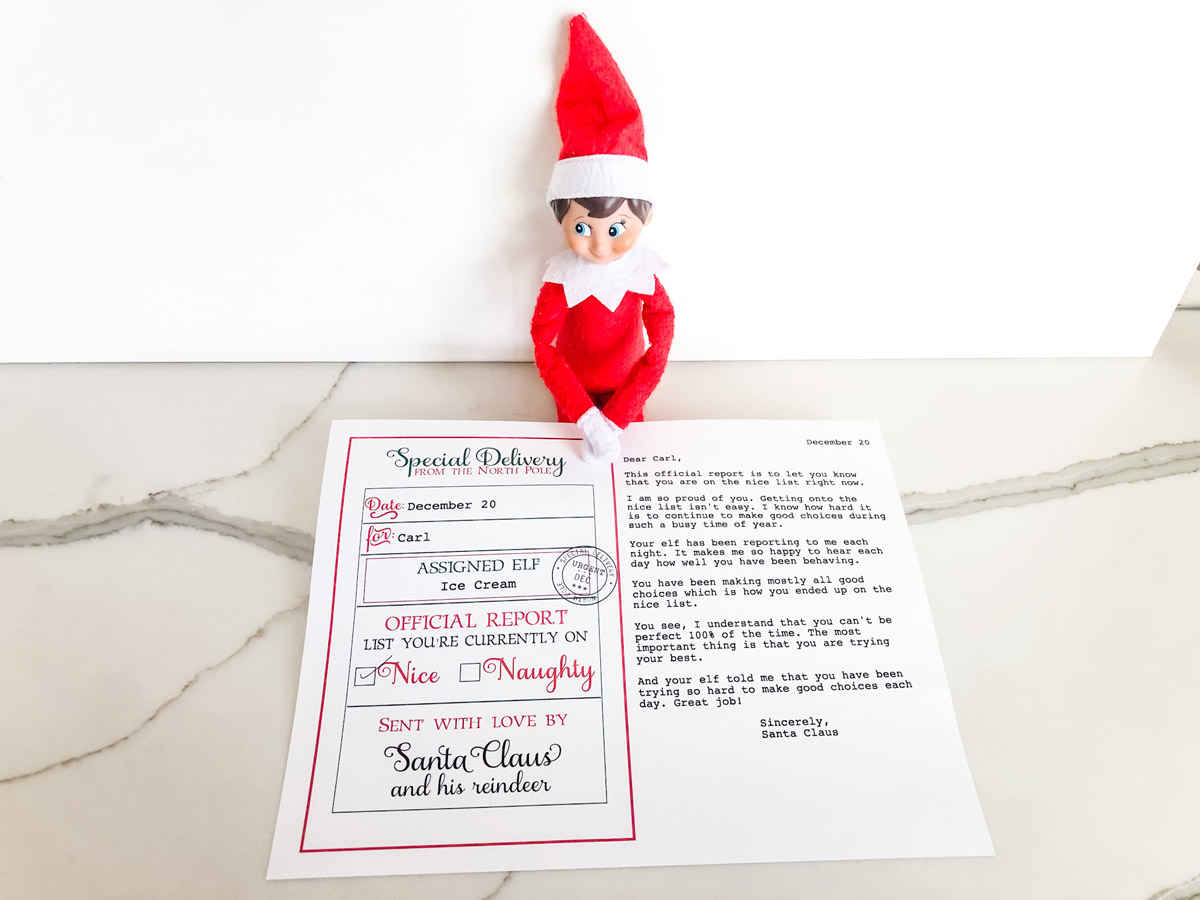 Special Delivery
FROM THE NORTH POLE
Date: December 20
for: Carl
ASSIGNED ELF
Ice Cream
SPECIAL DELIVERY
URGENT
DEC
***
NORTH POLE
OFFICIAL REPORT
LIST YOU'RE CURRENTLY ON
Nice Naughty
SENT WITH LOVE BY
Santa Claus
and his reindeer
December 20
Dear Carl,
This official report is to let you know
that you are on the nice list right now.
I am so proud of you. Getting onto the
nice list isn't easy. I know how hard it
is to continue to make good choices during
such a busy time of year.
Your elf has been reporting to me each
night. It makes me so happy to hear each
day how well you have been behaving.
You have been making mostly all good
choices which is how you ended up on the
nice list.
You see, I understand that you can't be
perfect 100% of the time. The most
important thing is that you are trying
your best.
And your elf told me that you have been
trying so hard to make good choices each
day. Great job!
Sincerely,
Santa Claus